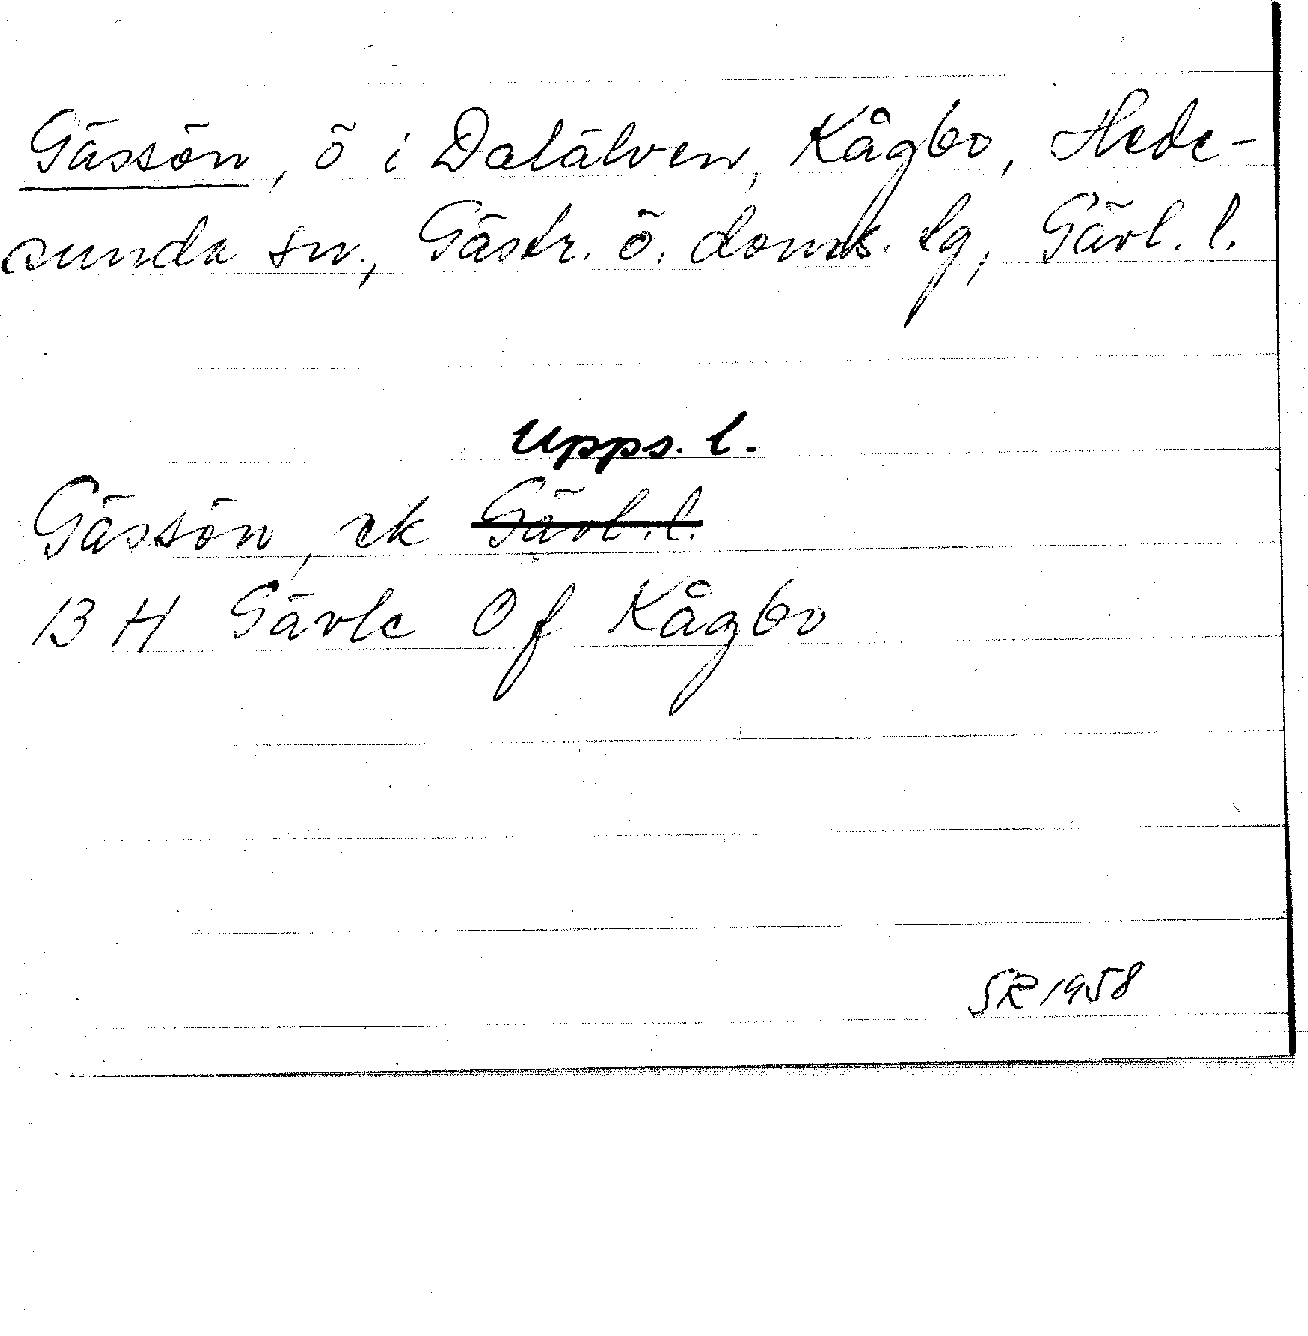 Gässön, ö i Dalälven, Kågbo, Hede-
sunda sn, Gästr. ö. doms. lg, Gävl. l.
Upps. l.
Gässön, ek Gävl. l.
13 H Gävle 0 f Kågbo
SR 1958